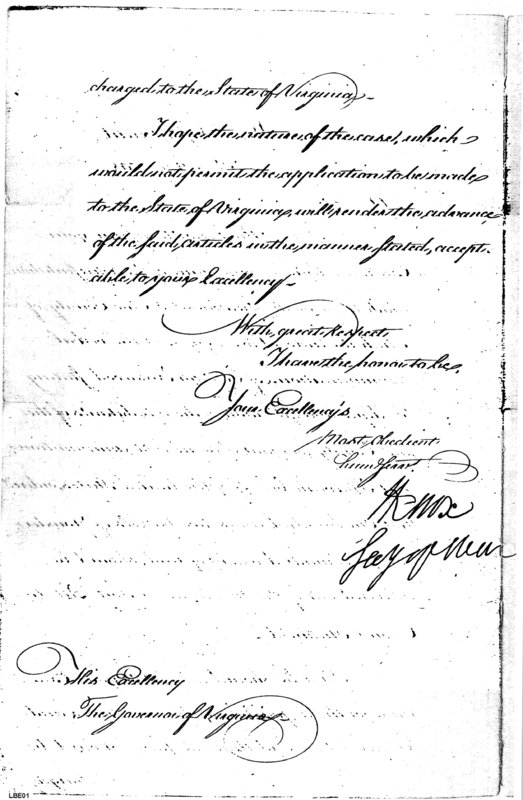 charged to the State of Virginia,
I hope the nature of the case, which
would not permit the application to be made
to the State of Virginia, will render the advance
of the said articles in the manner stated, accept-
able to your Excellency—
With great respect
I have the honor to be,
Your Excellency's
Most Obedient
Hum Servt
HKnox
Secy of War
His Excellency
The Governor of Virginia
LBE01